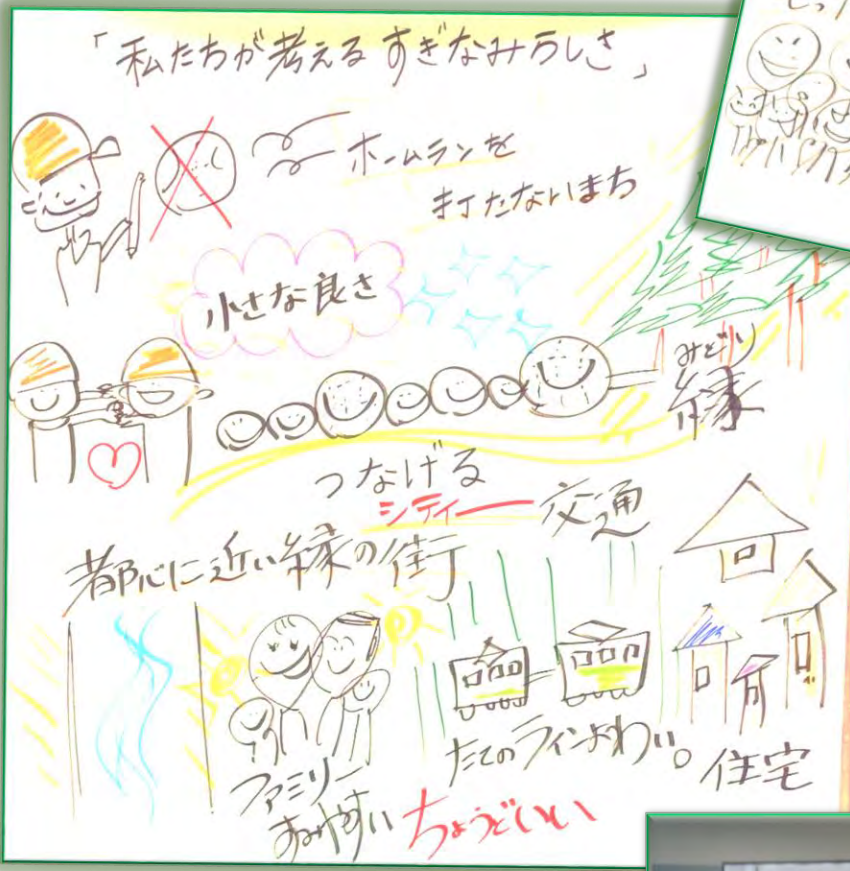 「私たちが考えるすぎなみらしさ」
ホームランを
打たないまち
小さな良さ
みどり
縁
つなげる
シティー
交通
都心に近い縁の街
たてのラインよわい。
住宅
ファミリー
すみやすい
ちょうどいい